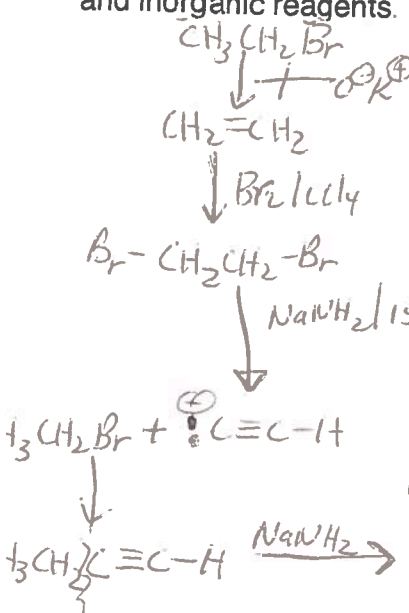 and inorganic reagents.
CH3CH2Br
O⊖K⊕
CH2=CH2
Br2/CCl4
Br-CH2CH2-Br
NaNH2/
3CH2Br + ⊕ :C≡C-H
3CH2C≡C-H NaNH2